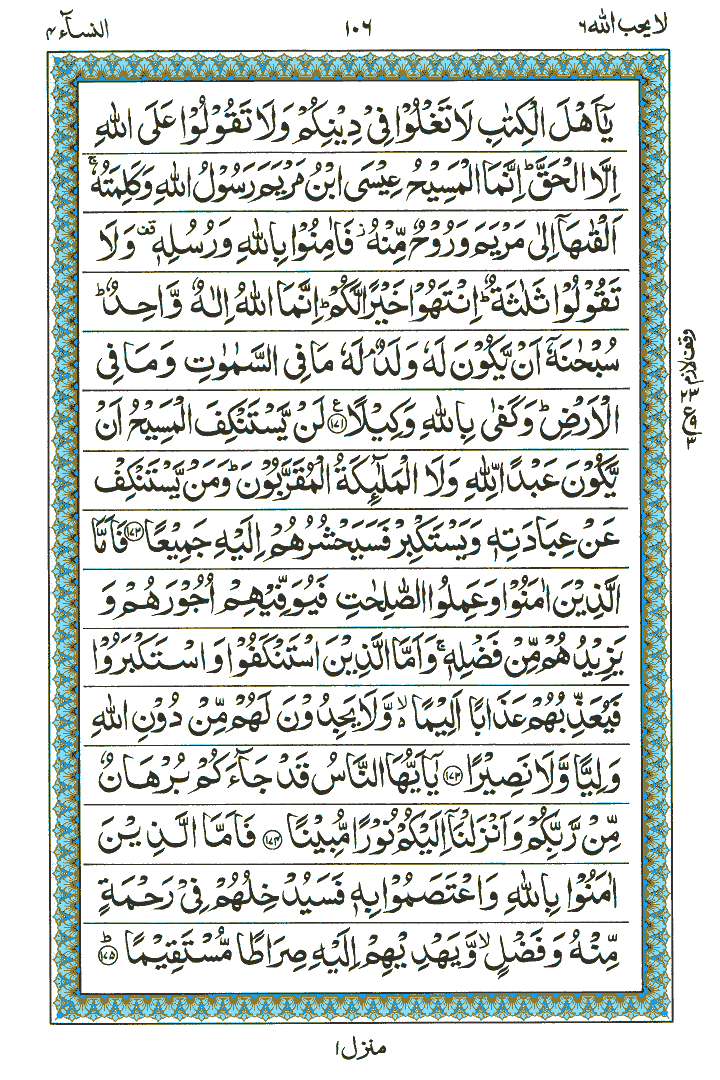 لا يحب الله ٦ ١٠٦ النسآء ٤
يٰۤاَهْلَ الْكِتٰبِ لَا تَغْلُوْا فِيْ دِيْنِكُمْ وَلَا تَقُوْلُوْا عَلَى اللّٰهِ
اِلَّا الْحَقَّ ؕ اِنَّمَا الْمَسِيْحُ عِيْسَى ابْنُ مَرْيَمَ رَسُوْلُ اللّٰهِ وَكَلِمَتُهٗ ۚ
اَلْقٰىهَاۤ اِلٰى مَرْيَمَ وَرُوْحٌ مِّنْهُ ؗ فَاٰمِنُوْا بِاللّٰهِ وَرُسُلِهٖ ۟ وَلَا
تَقُوْلُوْا ثَلٰثَةٌ ؕ اِنْتَهُوْا خَيْرًا لَّكُمْ ؕ اِنَّمَا اللّٰهُ اِلٰهٌ وَّاحِدٌ ؕ
سُبْحٰنَهٗۤ اَنْ يَّكُوْنَ لَهٗ وَلَدٌ ۘ لَهٗ مَا فِي السَّمٰوٰتِ وَمَا فِي
الْاَرْضِ ؕ وَكَفٰى بِاللّٰهِ وَكِيْلًا ۧ‏﴿١٧١﴾ لَنْ يَّسْتَنْكِفَ الْمَسِيْحُ اَنْ
يَّكُوْنَ عَبْدًا لِّلّٰهِ وَلَا الْمَلٰٓئِكَةُ الْمُقَرَّبُوْنَ ؕ وَمَنْ يَّسْتَنْكِفْ
عَنْ عِبَادَتِهٖ وَيَسْتَكْبِرْ فَسَيَحْشُرُهُمْ اِلَيْهِ جَمِيْعًا ﴿١٧٢﴾ فَاَمَّا
الَّذِيْنَ اٰمَنُوْا وَعَمِلُوا الصّٰلِحٰتِ فَيُوَفِّيْهِمْ اُجُوْرَهُمْ وَ
يَزِيْدُهُمْ مِّنْ فَضْلِهٖ ۚ وَاَمَّا الَّذِيْنَ اسْتَنْكَفُوْا وَاسْتَكْبَرُوْا
فَيُعَذِّبُهُمْ عَذَابًا اَلِيْمًا ۙ وَّلَا يَجِدُوْنَ لَهُمْ مِّنْ دُوْنِ اللّٰهِ
وَلِيًّا وَّلَا نَصِيْرًا ﴿١٧٣﴾ يٰۤاَيُّهَا النَّاسُ قَدْ جَآءَكُمْ بُرْهَانٌ
مِّنْ رَّبِّكُمْ وَاَنْزَلْنَاۤ اِلَيْكُمْ نُوْرًا مُّبِيْنًا ﴿١٧٤﴾ فَاَمَّا الَّذِيْنَ
اٰمَنُوْا بِاللّٰهِ وَاعْتَصَمُوْا بِهٖ فَسَيُدْخِلُهُمْ فِيْ رَحْمَةٍ
مِّنْهُ وَفَضْلٍ ۙ وَّيَهْدِيْهِمْ اِلَيْهِ صِرَاطًا مُّسْتَقِيْمًا ؕ‏﴿١٧٥﴾
وقف لازم
منزل ١